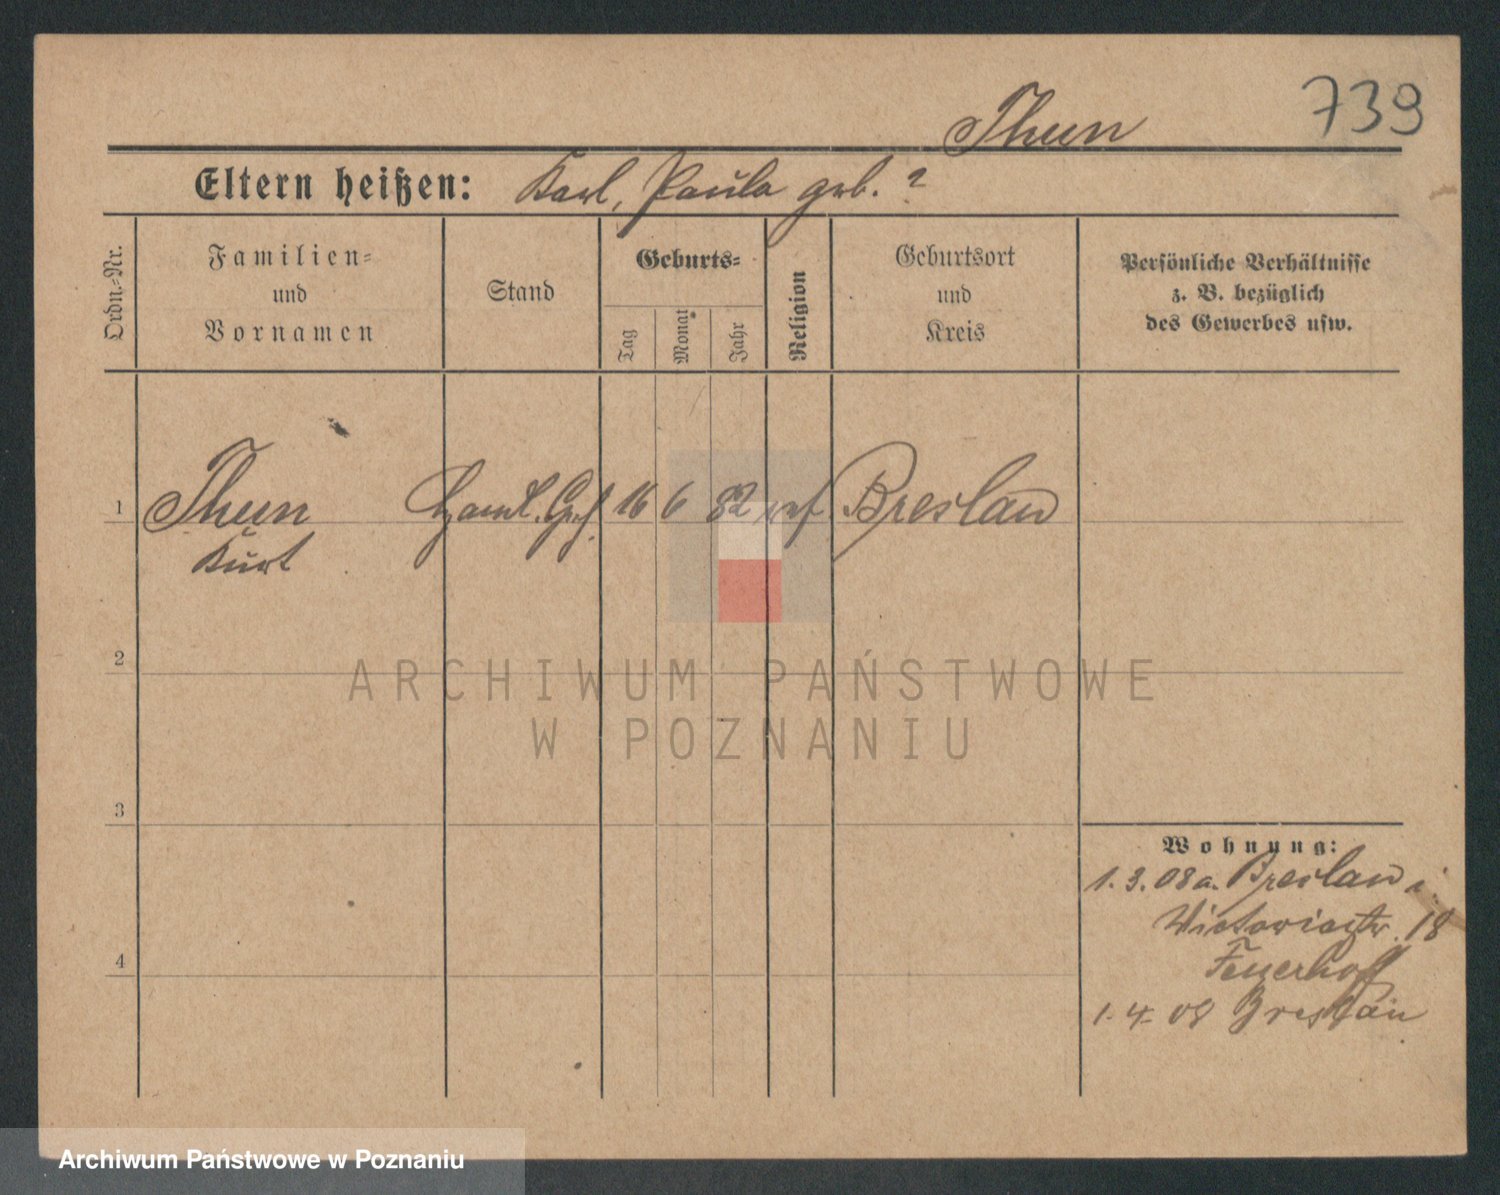 739
Thun
Eltern heißen: Karl, Paula geb. ?
Ordn.-Nr.
Familien-
und
Vornamen
Stand
Geburts-
Tag
Monat
Jahr
Religion
Geburtsort
und
Kreis
Persönliche Verhältnisse
z. B. bezüglich
des Gewerbes usw.
1 Thun Handl. Geh. 16 6 82 ref Breslau
Kurt
2
3
4
Wohnung:
1.3.08 a. Breslau i.
Victoriastr. 18
Feyerhoff
1.4.08 Breslau
ARCHIWUM PAŃSTWOWE
W POZNANIU
Archiwum Państwowe w Poznaniu